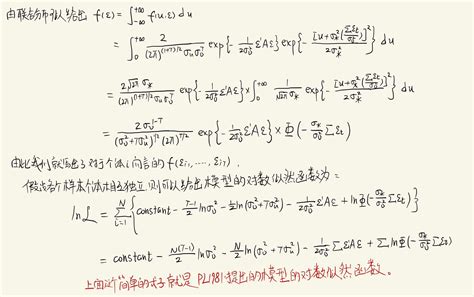 由联合分布可以给出 f(ε) = ∫_{-∞}^{+∞} f(u,ε) du
= ∫_0^{+∞} 2/((2π)^{(1+T)/2} σ_u σ_v^T) exp{-1/(2σ_v²) ε'Aε} exp{-[u+σ_*²(Σε_t/σ_v²)]²/(2σ_*²)} du
= 2√(2π) σ_*/((2π)^{(1+T)/2} σ_u σ_v^T) exp{-1/(2σ_v²) ε'Aε} × ∫_0^{+∞} 1/(√(2π) σ_*) exp{-[u+σ_*²(Σε_t/σ_v²)]²/(2σ_*²)} du
= 2σ_v^{1-T}/((σ_v²+Tσ_u²)^{1/2} (2π)^{T/2}) exp{-1/(2σ_v²) ε'Aε} × Φ(-σ_*/σ_v² Σε_t)
由此我们就写出了对于个体i而言的 f(ε_{i1}, ..., ε_{iT}),
假设各个样本个体相互独立则可以给出模型的对数似然函数为:
lnL = Σ_{i=1}^N {constant - (T-1)/2 lnσ_v² - 1/2 ln(σ_v²+Tσ_u²) - 1/(2σ_v²) ε'Aε + lnΦ(-σ_*/σ_v² Σε_t)}
= constant - N(T-1)/2 lnσ_v² - N/2 ln(σ_v²+Tσ_u²) - 1/(2σ_v²) Σε'Aε + Σ lnΦ(-σ_*/σ_v² Σε_t)
上面这个简单的式子就是 PL1981 提出的模型的对数似然函数。